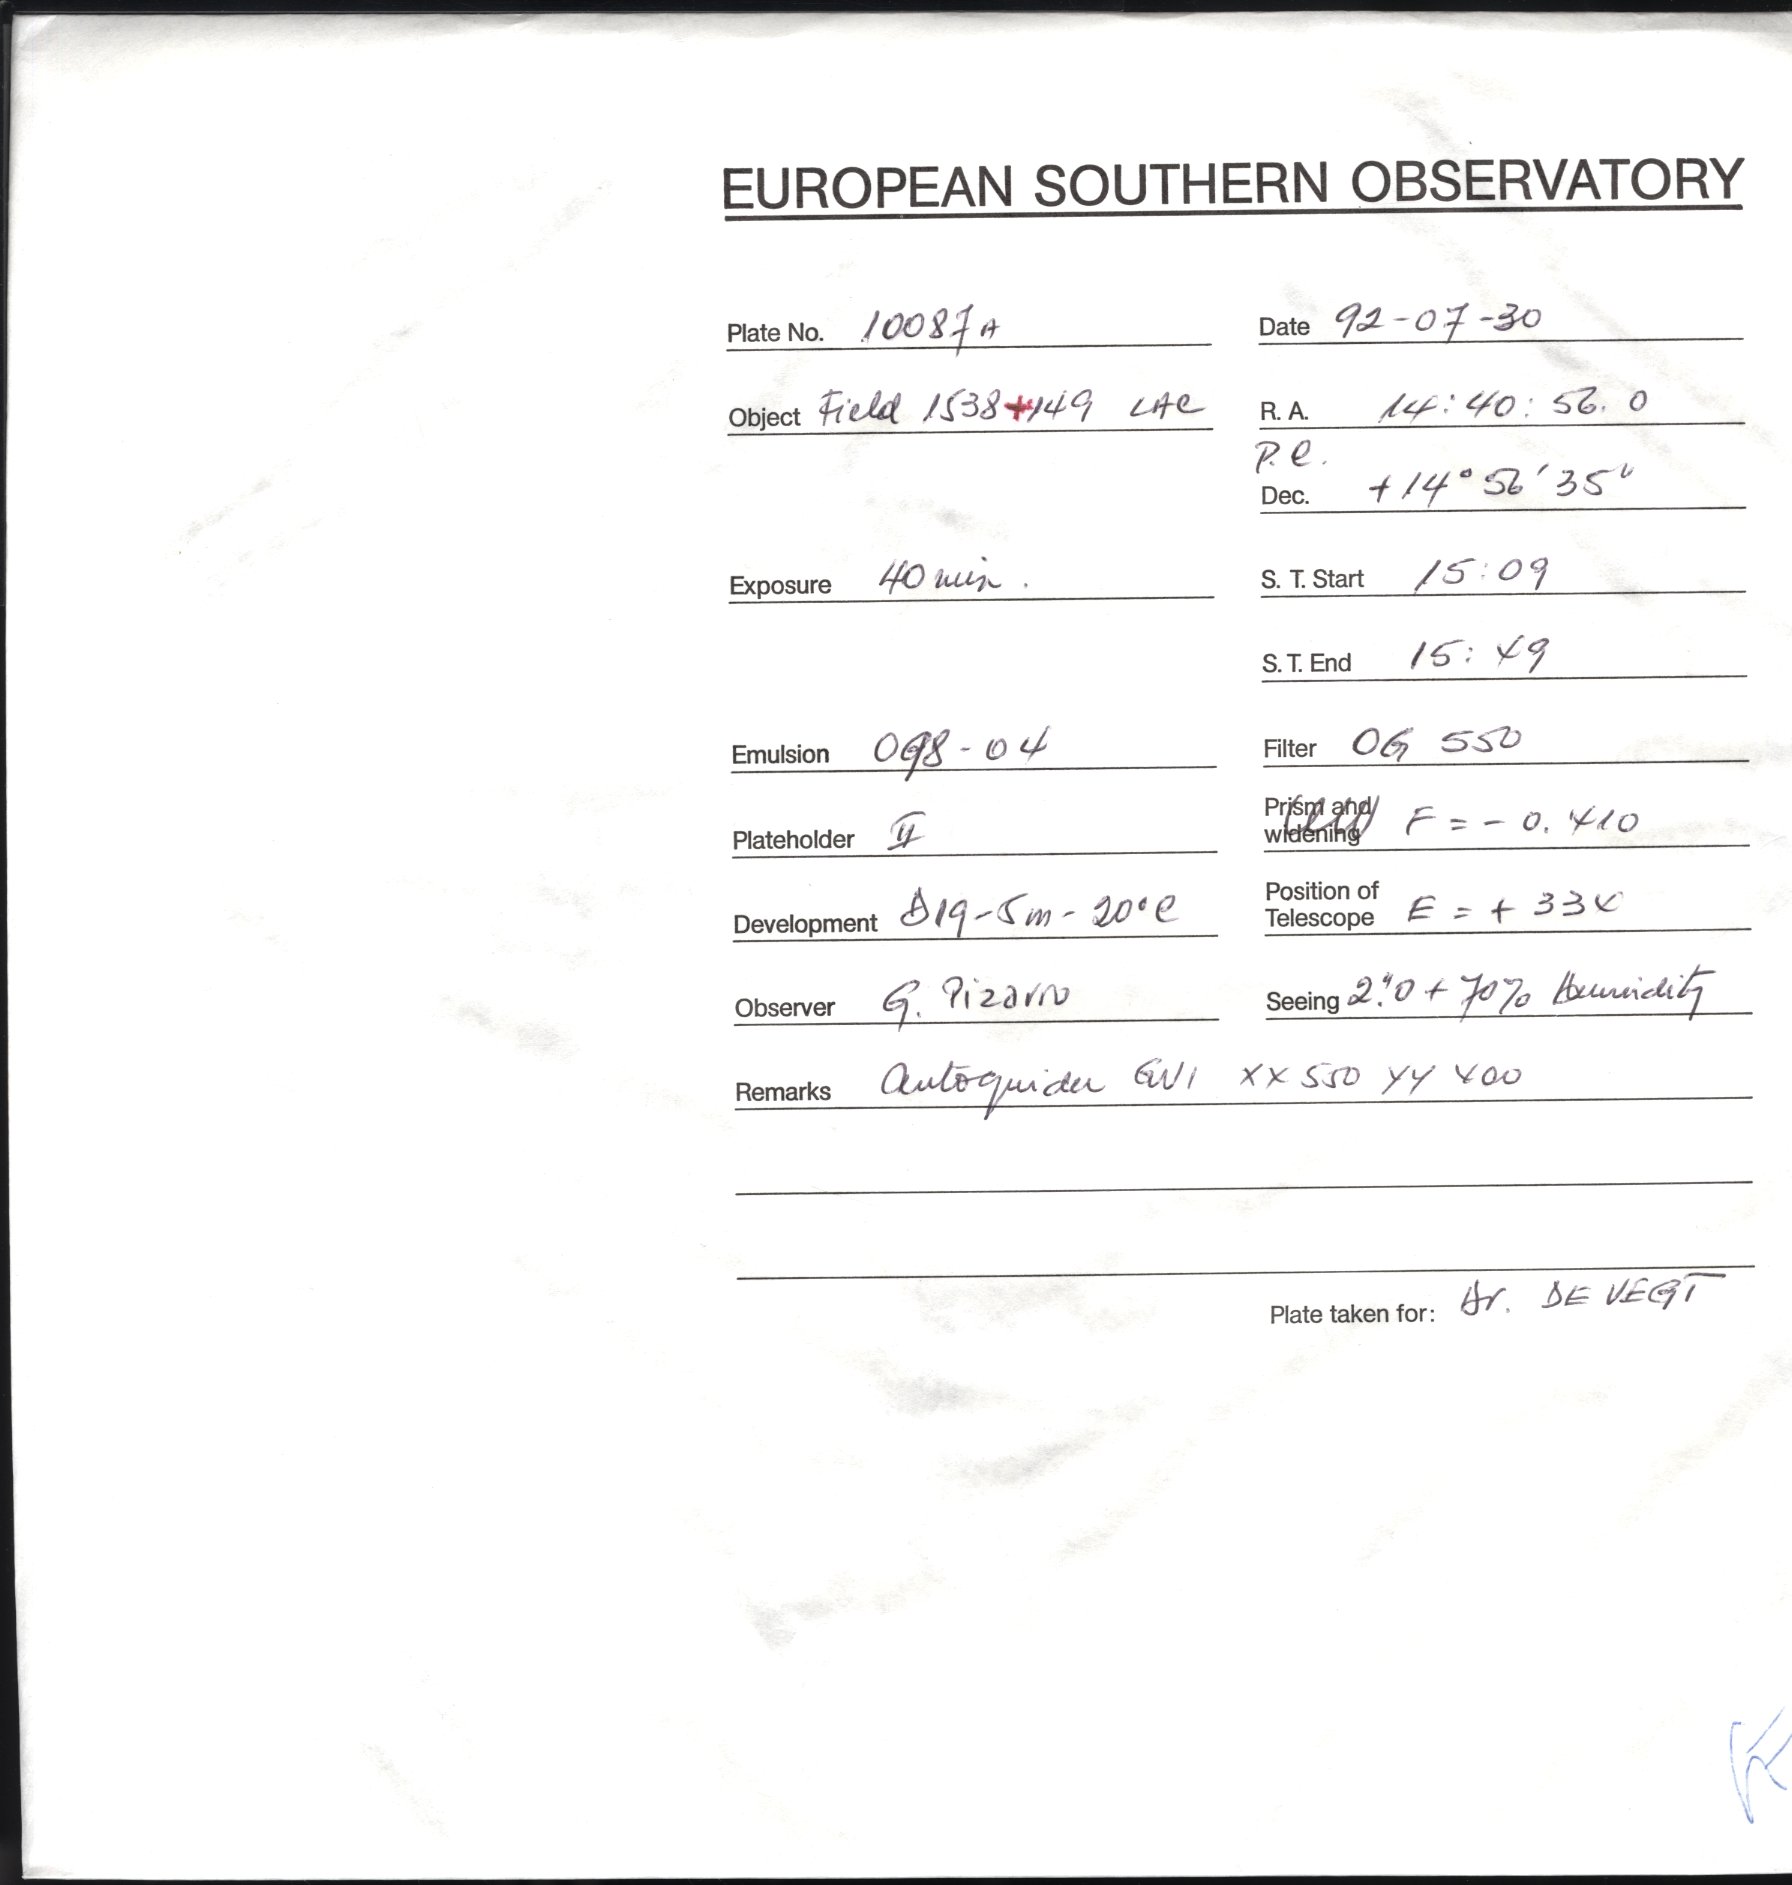 EUROPEAN SOUTHERN OBSERVATORY
Plate No. 10087A Date 92-07-30
Object Field 1538+149 LAC R. A. 14:40:56.0
P.C.
Dec. +14° 56' 35"
Exposure 40 min. S. T. Start 15:09
S. T. End 15:49
Emulsion 098-04 Filter OG 550
Plateholder II Prism and widening F = - 0.410
Development D19-5m-20°C Position of Telescope E = + 334
Observer G. Pizarro Seeing 2."0 + 70% Humidity
Remarks Autoguider GV1 XX 550 YY 400
Plate taken for: Dr. DE VEGT